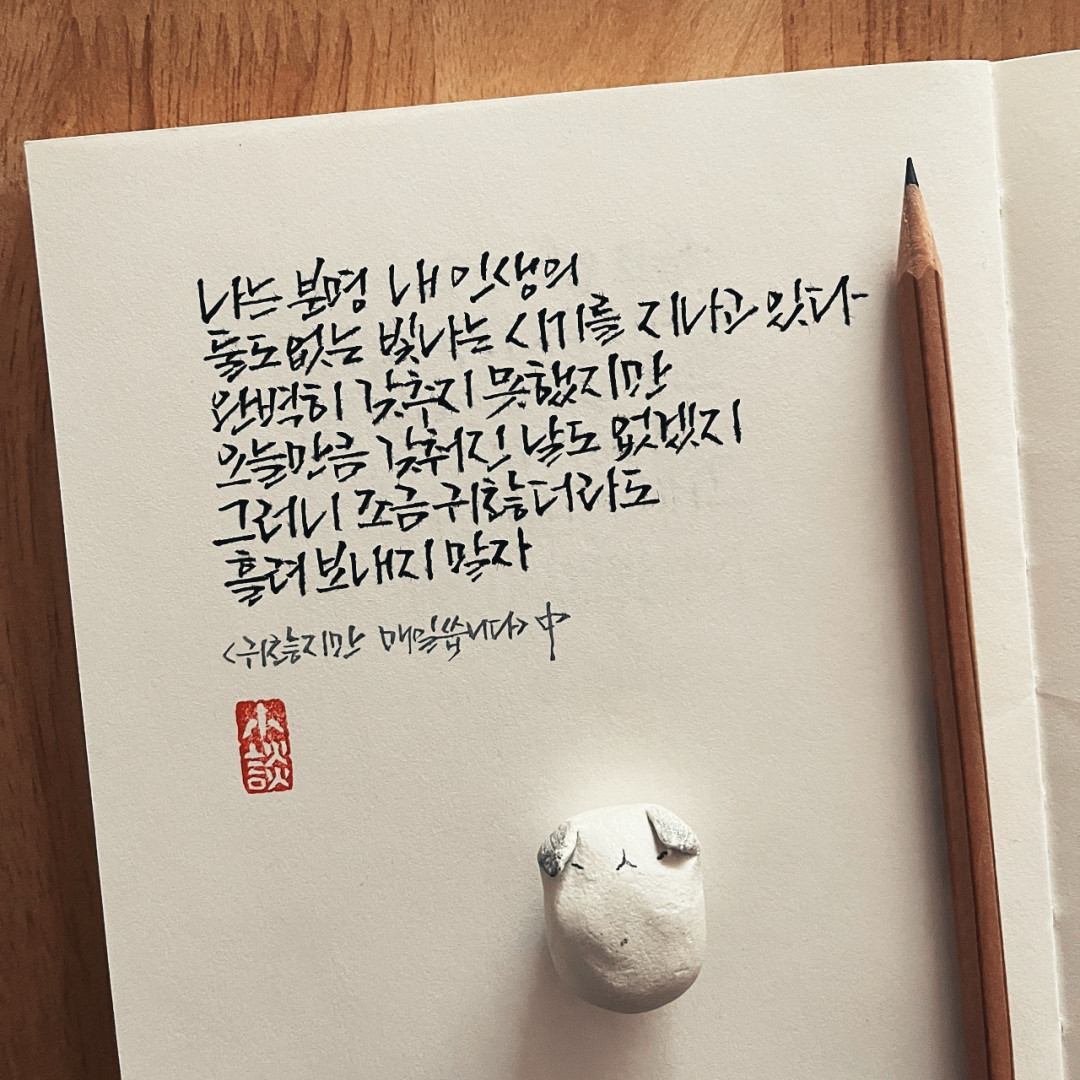 나는 분명 내 인생의
둘도없는 빛나는 시기를 지나고 있다
완벽히 갖추지 못했지만
오늘만큼 갖춰진 날도 없겠지
그러니 조금 귀찮더라도
흘려 보내지 말자
<귀찮지만 매일씁니다> 中
小談